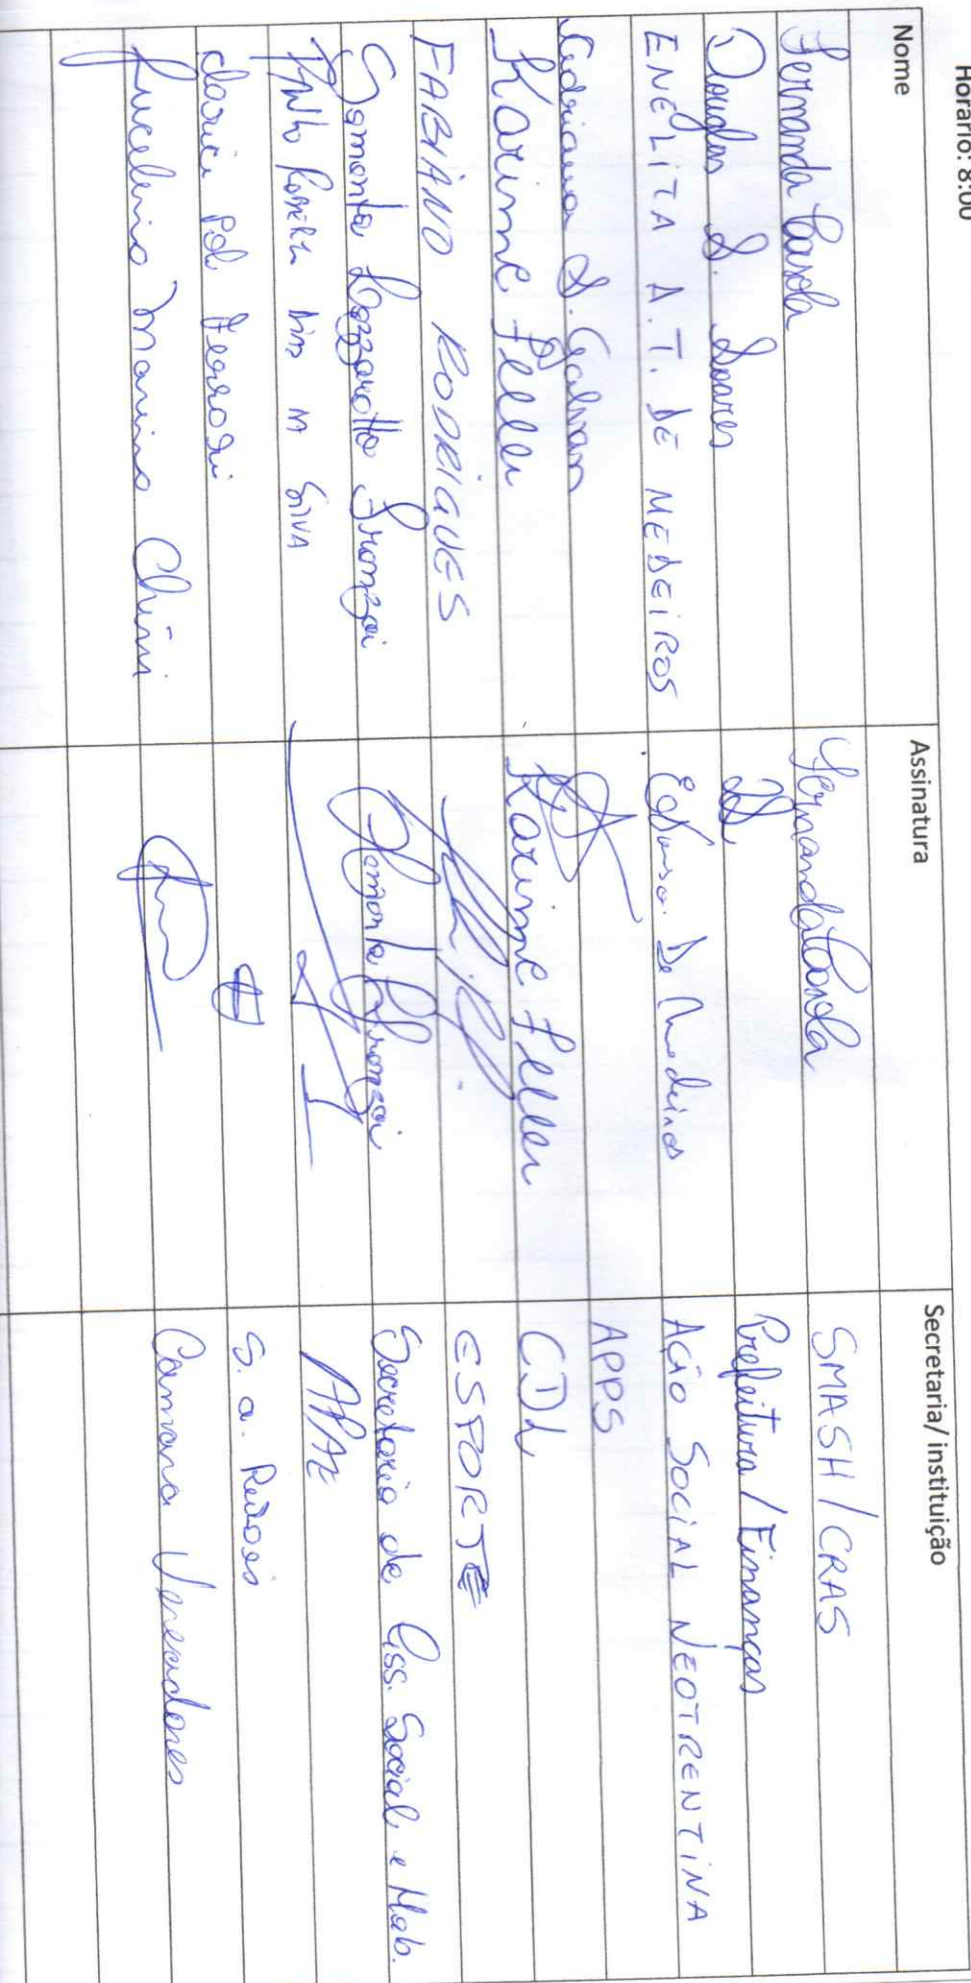 Horário: 8:00
Nome Assinatura Secretaria/ instituição
Fernanda Casola Fernanda Casola SMASH/CRAS
Douglas S. Soares Prefeitura/Finanças
ENELITA A.T. DE MEDEIROS De Medeiros AÇÃO SOCIAL NEOTRENTINA
Adriana S. Galvan APPS
Karine Feller Karine Feller CDL
FABIANO RODRIGUES ESPORTE
Samonta Lazzarotto Fronzoi Samonta Fronzoi Secretaria de Ass. Social e Hab.
SILVA APAE
S. a.
Jucelino Marino Chini Camara Vereadores